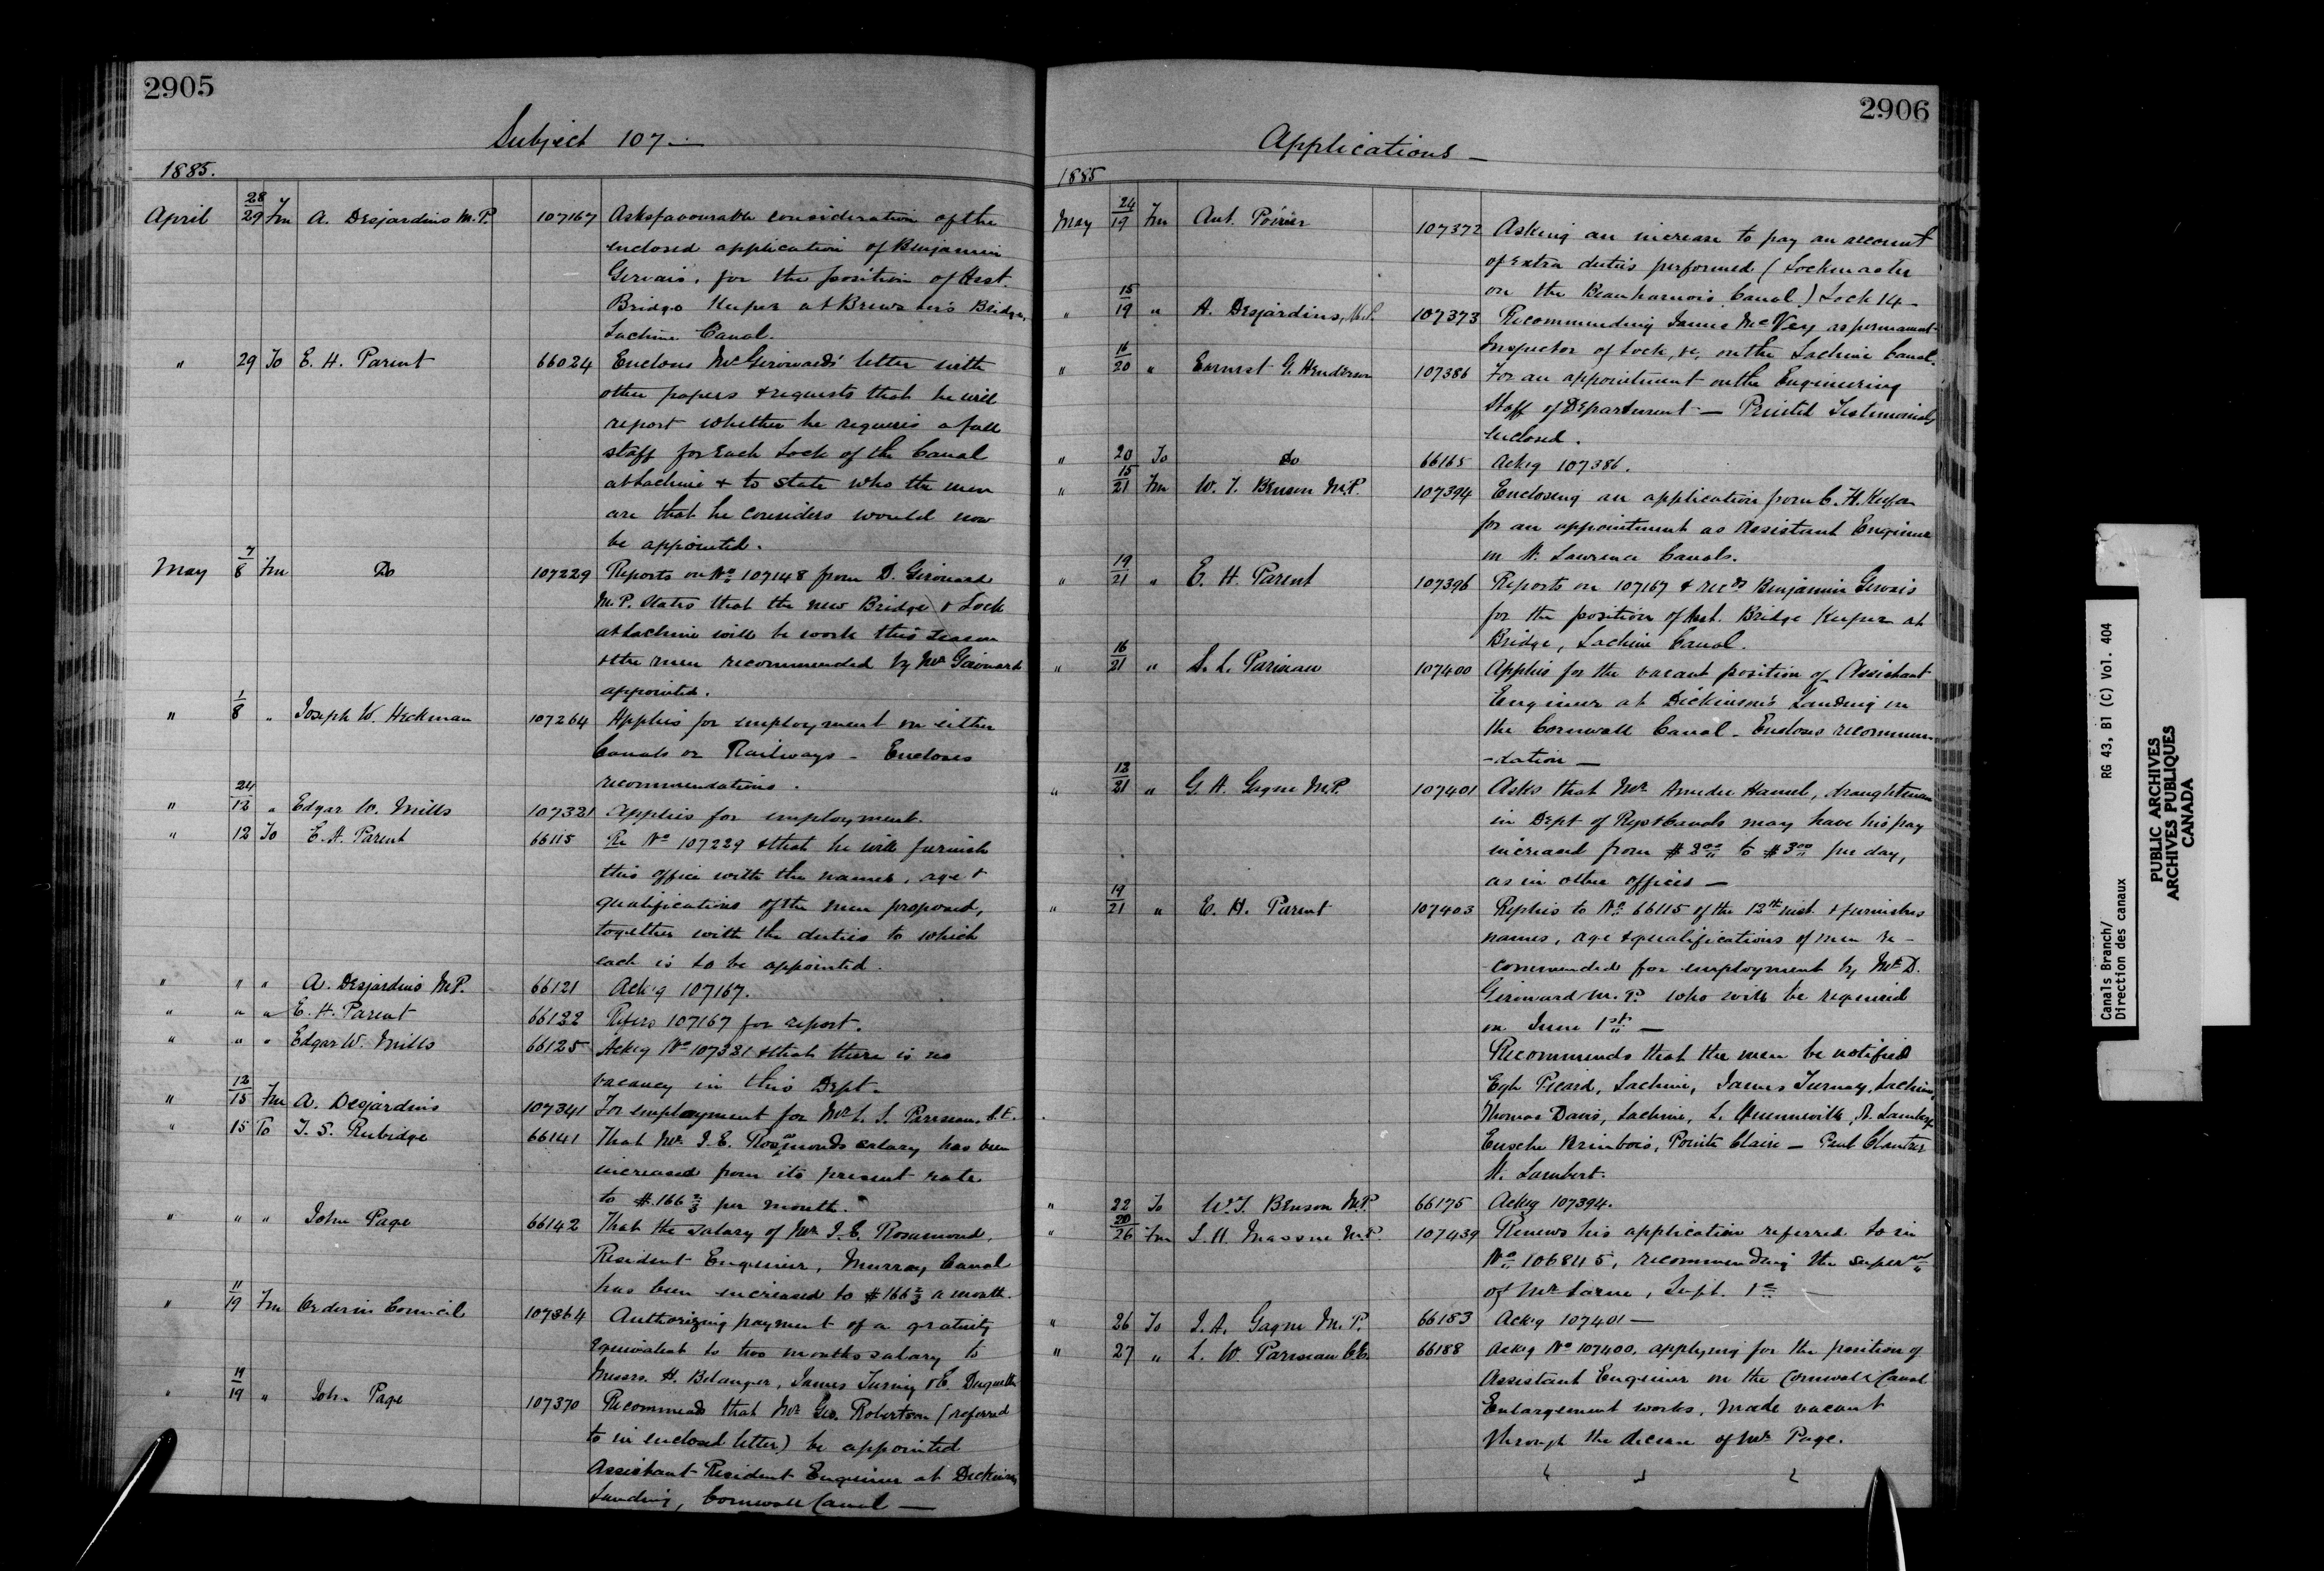 2905
Subject 107 —
1885.
April 28/29 Fm A. Desjardins M.P. 107167 Asks favourable consideration of the
enclosed application of Benjamin
Gervais, for the position of Asst.
Bridge Keeper at Brewster's Bridge,
Lachine Canal.
" 29 To E. H. Parent 66024 Enclose Mr Girouard's letter with
other papers & requests that he will
report whether he requires a full
staff for Each Lock of the Canal
at Lachine & to state who the men
are that he considers would now
be appointed.
May 7/8 Fm Do 107229 Reports on No 107148 from D. Girouard
M.P. States that the new Bridge & Lock
at Lachine will be work this season
& the men recommended by Mr Girouard
appointed.
" 1/8 " Joseph W. Heckman 107264 Applies for employment on either
Canals or Railways - Encloses
recommendations.
" 24/12 " Edgar W. Mills 107321 Applies for employment.
" 12 To E. H. Parent 66115 Re No 107229 & that he will furnish
this office with the names, age &
qualifications of the men proposed,
together with the duties to which
each is to be appointed.
" " " A. Desjardins M.P. 66121 Ack'g 107167.
" " " E. H. Parent 66122 Refers 107167 for report.
" " " Edgar W. Mills 66125 Ackg No 107321 & that there is no
vacancy in this Dept.
" 12/15 Fm A. Desjardins 107341 For employment for Mr L. S. Pariseau, C.E.
" 15 To T. S. Rubidge 66141 That Mr J. E. Rosamonds salary has been
increased from its present rate
to $166 2/3 per month.
" " " John Page 66142 That the salary of Mr J. E. Rosamond,
Resident Engineer, Murray Canal
has been increased to $166 2/3 a month.
" 11/19 Fm Order in Council 107364 Authorizing payment of a gratuity
Equivalent to two months salary to
Messrs. H. Belanger, James & E. Duquette
" 19 " John Page 107370 Recommends that Mr Geo. Robertson (referred
to in enclosed letter) be appointed
Assistant Resident Engineer at Dickinson's
Landing, Cornwall Canal —
2906
Applications —
1885
May 24/19 Fm Ant. Poirier 107372 Asking an increase to pay an account
of Extra duties performed (Lockmaster
on the Beauharnois Canal) Lock 14 -
" 15/19 " A. Desjardins, M.P. 107373 Recommending James McVey as permanent
Inspector of Lock, &c, on the Lachine Canal.
" 16/20 " Earnest G. Henderson 107386 For an appointment on the Engineering
Staff of Department — Printed Testimonials
enclosed.
" 20 To do 66165 Ackg 107386.
" 15/21 Fm W. T. Benson M.P. 107394 Enclosing an application from C. H.
for an appointment as Assistant Engineer
on St. Lawrence Canals.
" 19/21 " E. H. Parent 107396 Reports on 107167 & recds Benjamin Gervais
for the position of Asst. Bridge Keeper at
Bridge, Lachine Canal.
" 16/21 " S. L. Pariseau 107400 Applies for the vacant position of Assistant
Engineer at Dickinson's Landing on
the Cornwall Canal - Encloses recommen-
-dation —
" 12/21 " G. A. Gagne M.P. 107401 Asks that Mr Amedee Hamel, draughtsman
in Dept of Rys & Canals may have his pay
increased from $2.00 to $3.00 per day,
as in other offices —
" 19/21 " E. H. Parent 107403 Replies to No 66115 of the 12th inst. & furnishes
names, age & qualifications of men re-
-commended for employment by Mr D.
Girouard M.P. who will be required
on June 1st —
Recommends that the men be notified
Picard, Lachine, James Lachine,
Thomas Davis, Lachine, L. Quenneville, St. Lambert,
Brinbois, Pointe Claire — Paul
St. Lambert.
" 22 To W. T. Benson M.P. 66175 Ackg 107394.
" 20/26 Fm Massue M.P. 107439 Renews his application referred to in
No 106845, recommending the
of Mr Larue, Supt.
" 26 To J. A. Gagne M.P. 66183 Ackg 107401 —
" 27 " L. W. Pariseau C.E. 66188 Ackg No 107400, applying for the position of
Assistant Engineer on the Cornwall Canal
Enlargement works, made vacant
through the decease of Mr Page.
Canals Branch/
Direction des canaux
RG 43, B1 (C) Vol. 404
PUBLIC ARCHIVES
ARCHIVES PUBLIQUES
CANADA